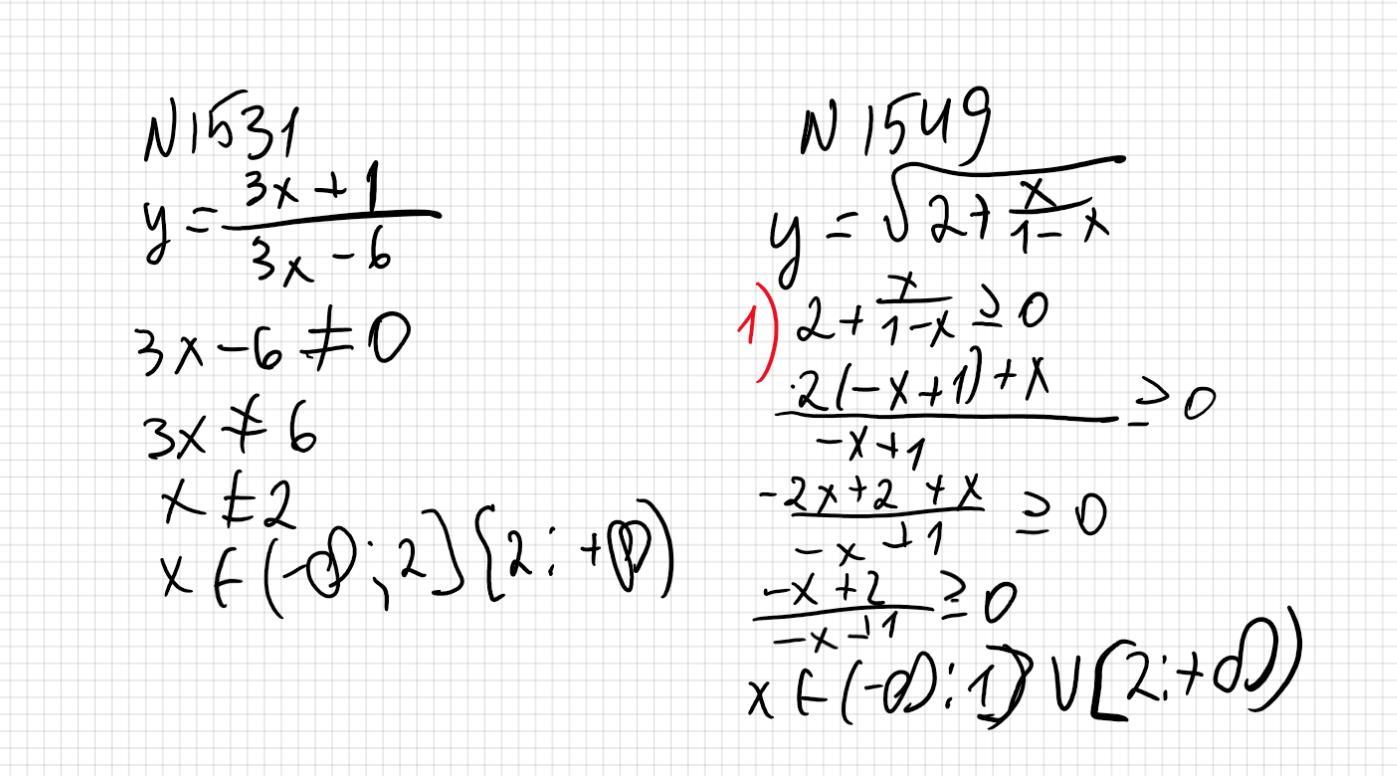 N1531
y = (3x + 1)/(3x - 6)
3x - 6 ≠ 0
3x ≠ 6
x ≠ 2
x ∈ (-∞; 2] [2; +∞)
N 1549
y = √(2 + x/(1 - x))
1) 2 + x/(1-x) ≥ 0
(2(-x+1) + x)/(-x+1) ≥ 0
(-2x+2 + x)/(-x+1) ≥ 0
(-x+2)/(-x+1) ≥ 0
x ∈ (-∞; 1) ∪ [2; +∞)